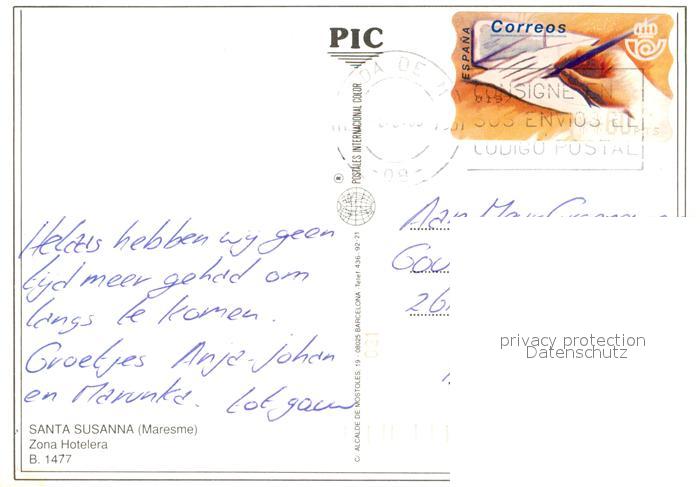 PIC
ESPAÑA
Correos
CONSIGNE EN
SUS ENVIOS EL
CODIGO POSTAL
POSTALES INTERNACIONAL COLOR
®
C/. ALCALDE DE MOSTOLES, 19 - 08025 BARCELONA - Telef. 436-92-21
Helaas hebben wij geen
tijd meer gehad om
langs te komen.
Groetjes Anja-Johan
en Marunka. tot gauw
Aan
Gou
26
privacy protection
Datenschutz
SANTA SUSANNA (Maresme)
Zona Hotelera
B. 1477